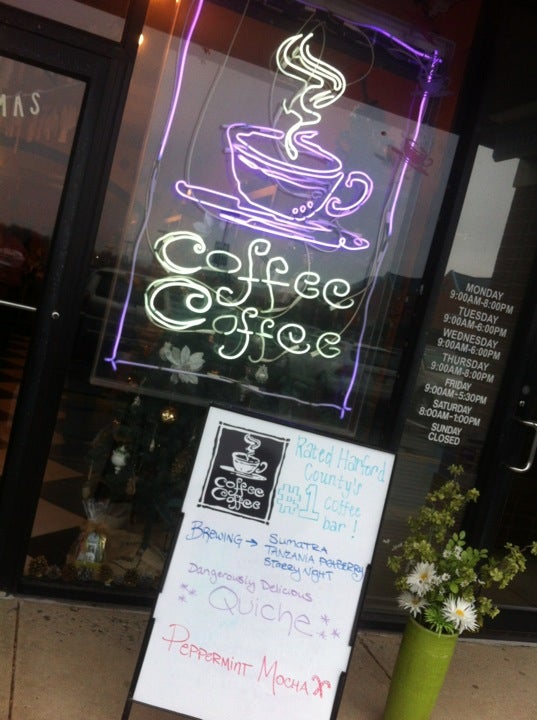 MAS
Coffee
Coffee
MONDAY
9:00AM-8:00PM
TUESDAY
9:00AM-6:00PM
WEDNESDAY
9:00AM-6:00PM
THURSDAY
9:00AM-8:00PM
FRIDAY
9:00AM-5:30PM
SATURDAY
8:00AM-1:00PM
SUNDAY
CLOSED
Coffee
Coffee
Rated Harford
County's
#1 coffee
bar!
BREWING → SUMATRA
TANZANIA PEABERRY
STARRY NIGHT
Dangerously Delicious
Quiche
PEPPERMINT MOCHA